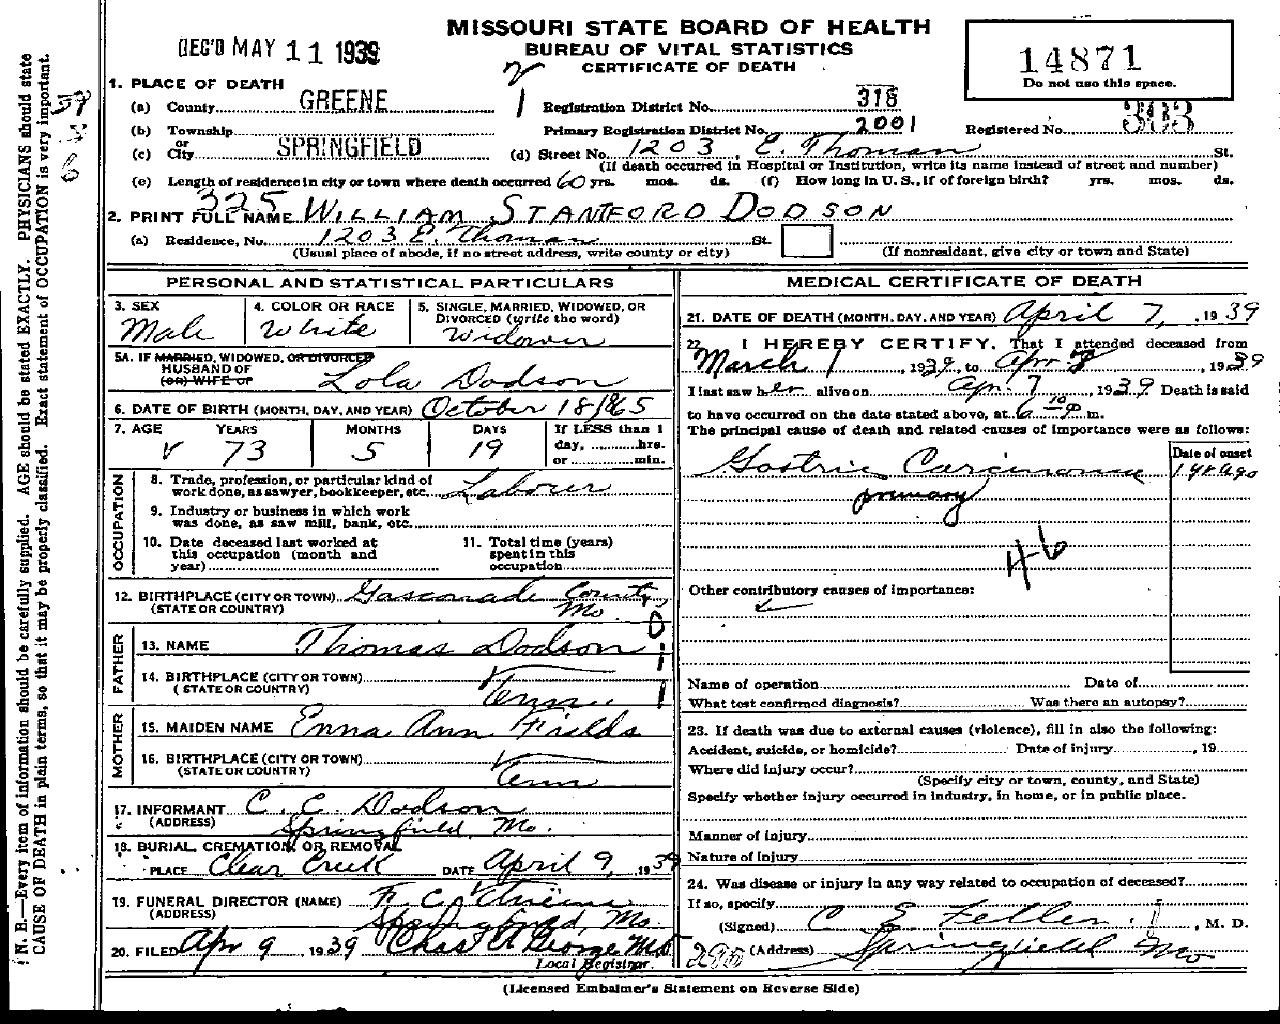 MISSOURI STATE BOARD OF HEALTH
BUREAU OF VITAL STATISTICS
CERTIFICATE OF DEATH
REC'D MAY 11 1939
14871
Do not use this space.
1. PLACE OF DEATH
(a) County GREENE
Registration District No. 318
(b) Township
Primary Registration District No. 2001
Registered No. 383
or
(c) City SPRINGFIELD
(d) Street No. 1203 E. Thoman St.
(If death occurred in Hospital or Institution, write its name instead of street and number)
(e) Length of residence in city or town where death occurred 60 yrs. mos. ds. (f) How long in U. S., if of foreign birth? yrs. mos. ds.
325
2. PRINT FULL NAME WILLIAM STANFORD DODSON
(a) Residence, No. 1203 E. Thoman St.
(Usual place of abode, if no street address, write county or city) (If nonresident, give city or town and State)
PERSONAL AND STATISTICAL PARTICULARS
3. SEX Male
4. COLOR OR RACE White
5. SINGLE, MARRIED, WIDOWED, OR DIVORCED (write the word) Widower
5A. IF MARRIED, WIDOWED, OR DIVORCED
HUSBAND OF
(OR) WIFE OF Lola Dodson
6. DATE OF BIRTH (MONTH, DAY, AND YEAR) October 18 1865
7. AGE YEARS MONTHS DAYS If LESS than 1
day, hrs.
or min.
73 5 19
OCCUPATION
8. Trade, profession, or particular kind of
work done, as sawyer, bookkeeper, etc. Laborer
9. Industry or business in which work
was done, as saw mill, bank, etc.
10. Date deceased last worked at
this occupation (month and
year)
11. Total time (years)
spent in this
occupation
12. BIRTHPLACE (CITY OR TOWN) Gasconade County,
(STATE OR COUNTRY) Mo.
FATHER
13. NAME Thomas Dodson
14. BIRTHPLACE (CITY OR TOWN)
(STATE OR COUNTRY) Tenn.
MOTHER
15. MAIDEN NAME Enna Ann Fields
16. BIRTHPLACE (CITY OR TOWN)
(STATE OR COUNTRY) Tenn
17. INFORMANT C. E. Dodson
(ADDRESS) Springfield, Mo.
18. BURIAL, CREMATION, OR REMOVAL
PLACE Clear Creek DATE April 9, 1939
19. FUNERAL DIRECTOR (NAME)
(ADDRESS) Springfield, Mo.
20. FILED Apr 9 1939 Chas A George MD
Local Registrar.
MEDICAL CERTIFICATE OF DEATH
21. DATE OF DEATH (MONTH, DAY, AND YEAR) April 7, 1939
22. I HEREBY CERTIFY, That I attended deceased from
March 1, 1939, to Apr 8, 1939
I last saw her alive on Apr 7, 1939 Death is said
to have occurred on the date stated above, at 6 10 P m.
The principal cause of death and related causes of importance were as follows:
Date of onset
Gastric Carcinoma 1 yr ago
primary
46
Other contributory causes of importance:
Name of operation Date of
What test confirmed diagnosis? Was there an autopsy?
23. If death was due to external causes (violence), fill in also the following:
Accident, suicide, or homicide? Date of injury , 19
Where did injury occur?
(Specify city or town, county, and State)
Specify whether injury occurred in industry, in home, or in public place.
Manner of injury
Nature of injury
24. Was disease or injury in any way related to occupation of deceased?
If so, specify
(Signed) C E Feller, M. D.
(Address) Springfield Mo
(Licensed Embalmer's Statement on Reverse Side)
N. B.—Every item of information should be carefully supplied. AGE should be stated EXACTLY. PHYSICIANS should state
CAUSE OF DEATH in plain terms, so that it may be properly classified. Exact statement of OCCUPATION is very important.